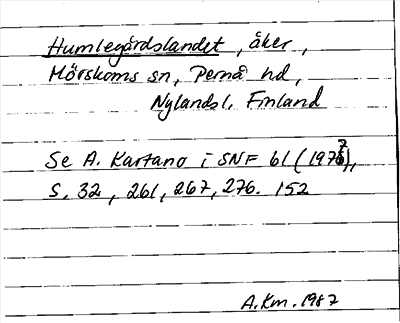 Humlegårdslandet, åker,
Mörskoms sn, Pernå hd,
Nylandsl. Finland
Se A. Kartano i SNF 61 (1977),
s. 32, 261, 267, 276. 152
A.Km. 1987